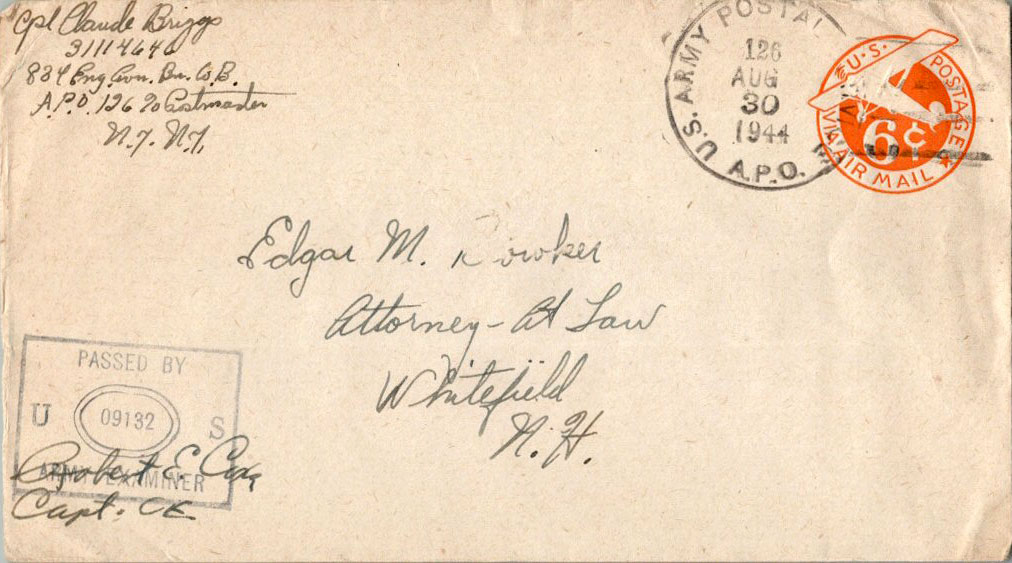 Cpl Claude Briggs
31114646
834 Eng. Avn. Bn. Co. B.
A.P.O. 126 % Postmaster
N.Y. N.Y.
U.S. ARMY POSTAL
126
AUG
30
1944
A.P.O.
U.S. POSTAGE
6¢
VIA AIR MAIL
Edgar M.
Attorney-At Law
Whitefield
N.H.
PASSED BY
U 09132 S
ARMY EXAMINER
Robert E. Cox
Capt. CE